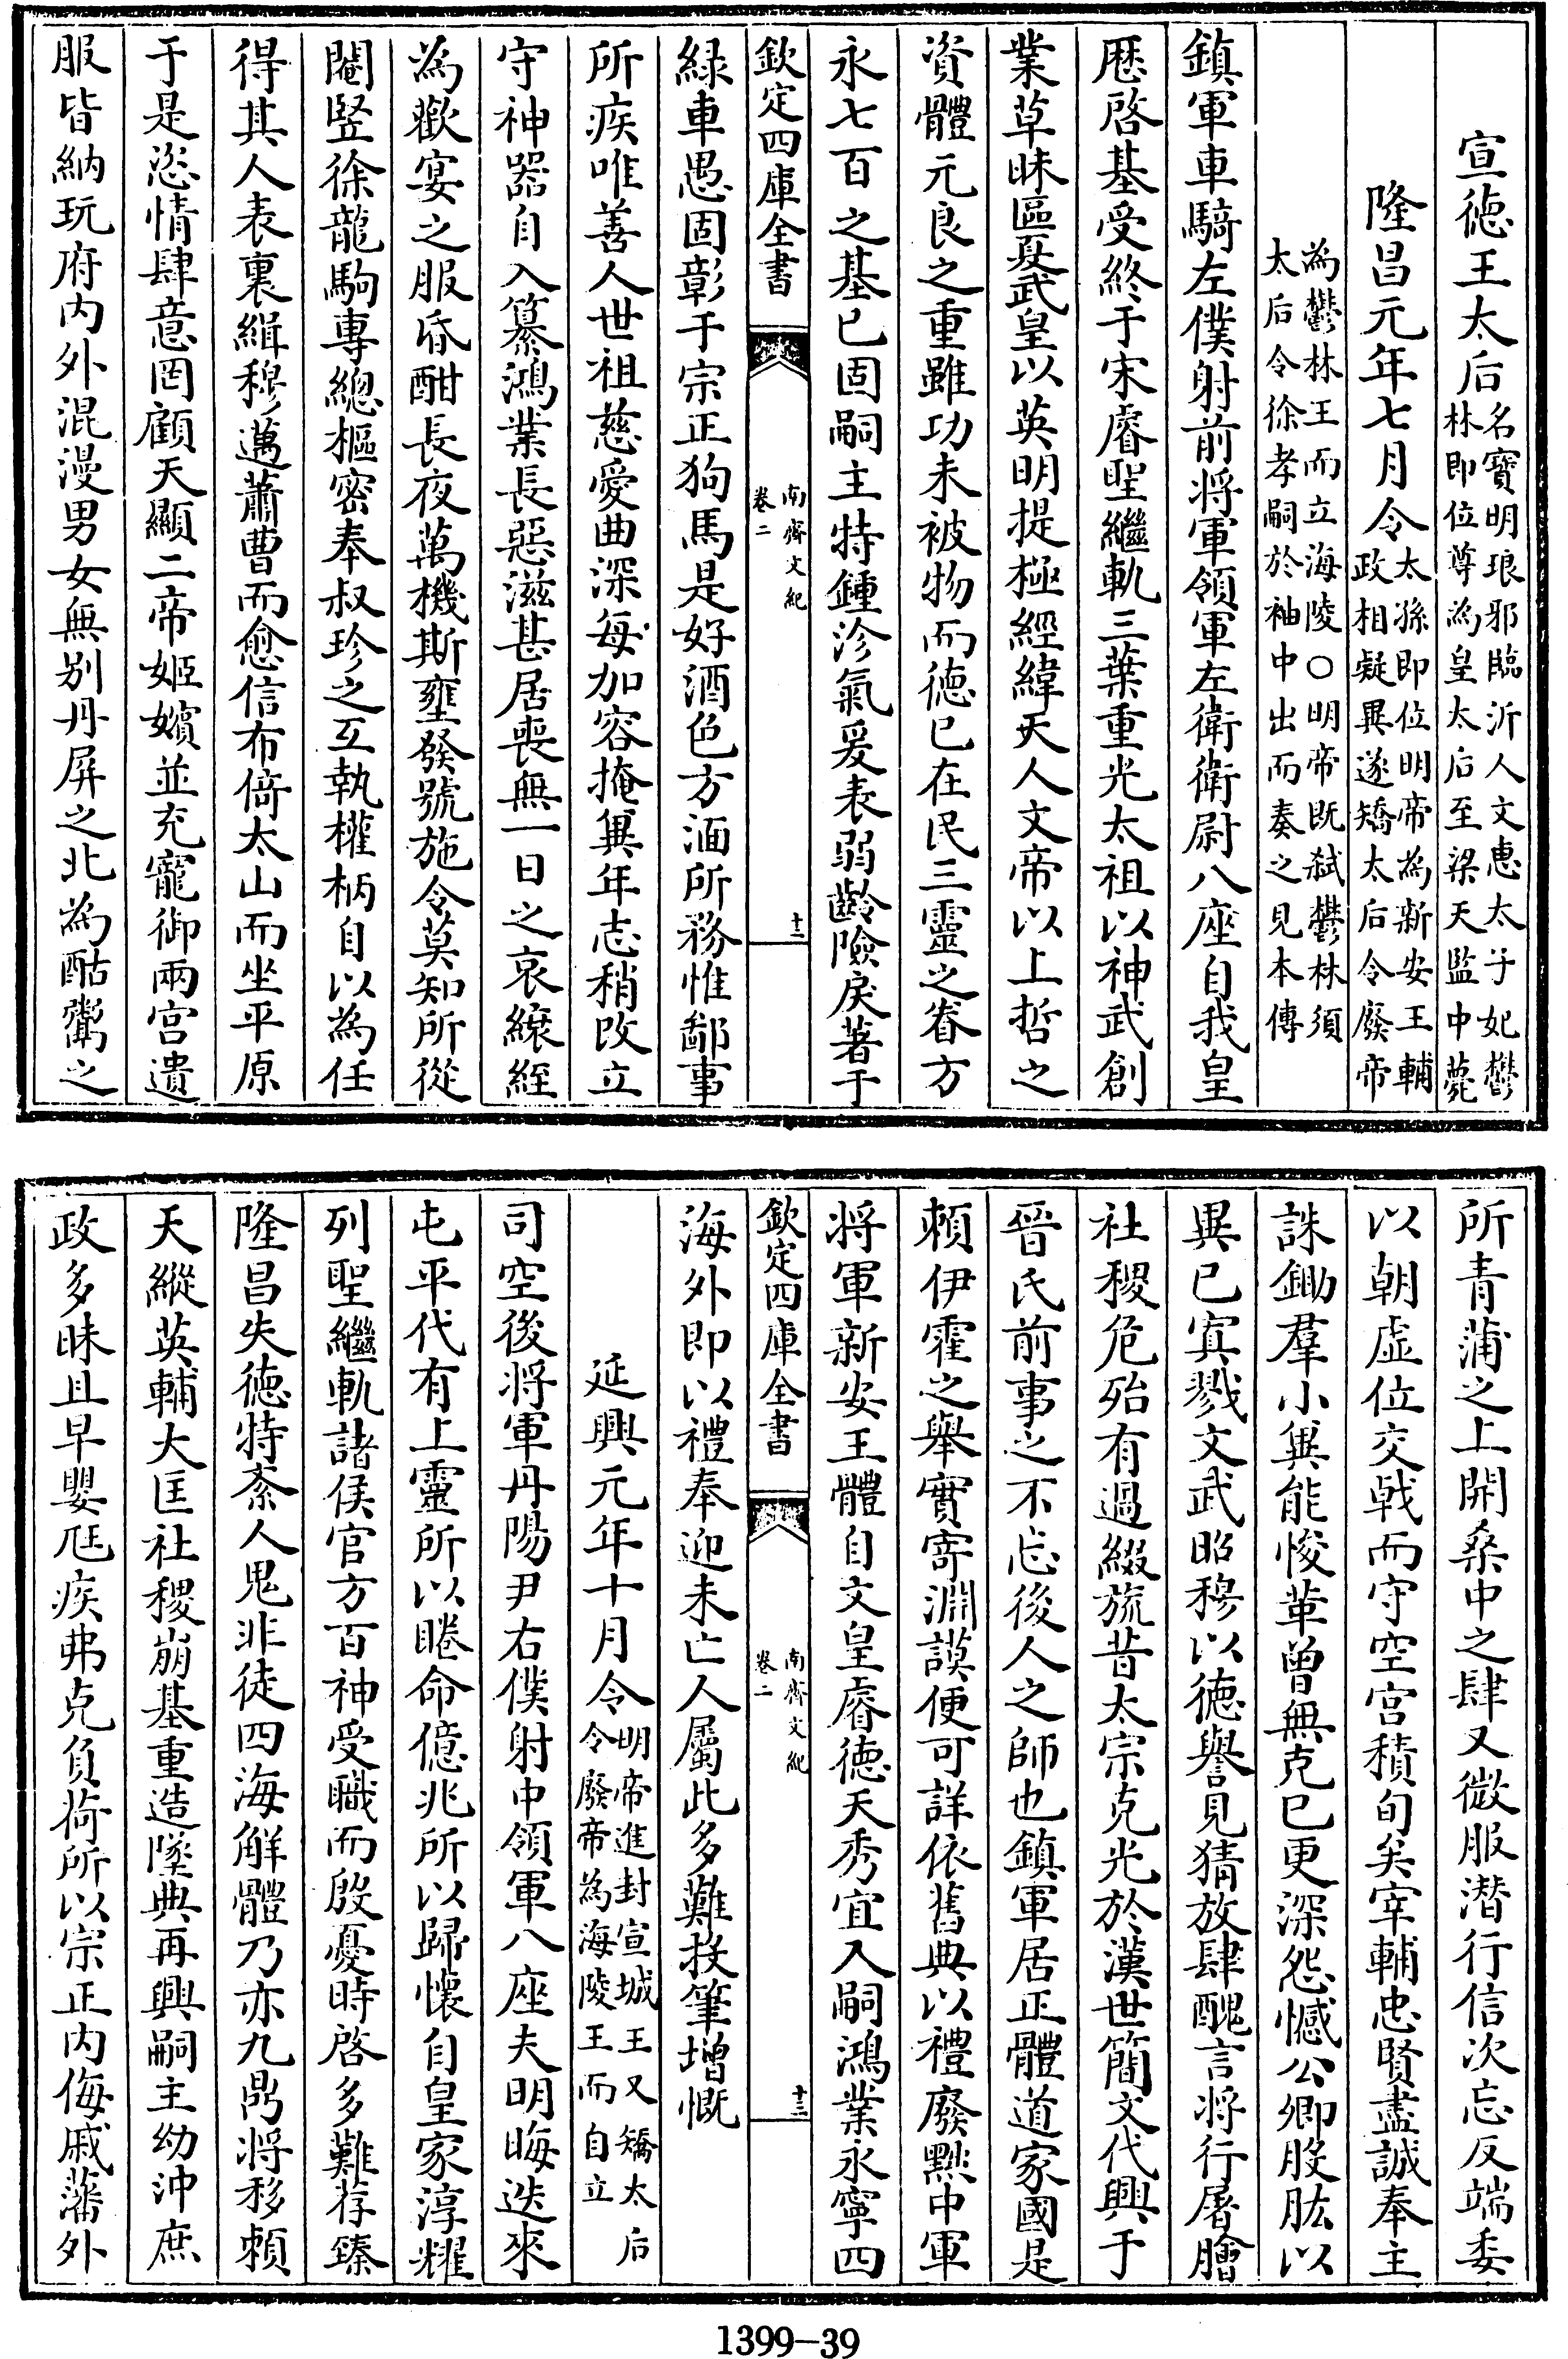 宣徳王太后名寶明琅邪臨沂人文惠太子妃鬱林即位尊為皇太后至梁天監中薨
隆昌元年七月令太孫即位明帝為新安王輔政相疑異遂矯太后令廢帝
為鬱林王而立海陵○明帝既弑鬱林須太后令徐孝嗣於袖中出而奏之見本傳
鎮軍車騎左僕射前將軍領軍左衛衛尉八座自我皇
厯啓基受終于宋睿聖繼軌三葉重光太祖以神武創
業草昧區夏武皇以英明提極經緯天人文帝以上哲之
資體元良之重雖功未被物而徳已在民三靈之眷方
永七百之基已固嗣主特鍾沴氣爰表弱齡險戾著于
欽定四庫全書
南齊文紀
卷二
十二
緑車愚固彰于宗正狗馬是好酒色方湎所務惟鄙事
所疾唯善人世祖慈愛曲深每加容掩冀年志稍改立
守神器自入纂鴻業長惡滋甚居喪無一日之哀縗絰
為歡宴之服昏酣長夜萬機斯壅發號施令莫知所從
閹竪徐龍駒專總樞密奉叔珍之互執權柄自以為任
得其人表裏緝穆邁蕭曹而愈信布倚太山而坐平原
于是恣情肆意罔顧天顯二帝姬嬪並充寵御兩宫遺
服皆納玩府内外混漫男女無别丹屏之北為酤鬻之
所青蒲之上開桑中之肆又微服潜行信次忘反端委
以朝虚位交㦸而守空宫積旬矣宰輔忠賢盡誠奉主
誅鋤羣小冀能悛革曽無克已更深怨憾公卿股肱以
異已寘戮文武昭穆以徳譽見猜放肆醜言將行屠膾
社稷危殆有過綴旒昔太宗克光於漢世簡文代興于
晉氏前事之不忘後人之師也鎮軍居正體道家國是
頼伊霍之舉實寄淵謨便可詳依舊典以禮廢黜中軍
將軍新安王體自文皇睿徳天秀宜入嗣鴻業永寧四
欽定四庫全書
南齊文紀
卷二
十三
海外即以禮奉迎未亡人屬此多難投筆增慨
延興元年十月令明帝進封宣城王又矯太后令廢帝為海陵王而自立
司空後將軍丹陽尹右僕射中領軍八座夫明晦迭來
屯平代有上靈所以睠命億兆所以歸懷自皇家淳耀
列聖繼軌諸侯官方百神受職而殷憂時啓多難荐臻
隆昌失徳特紊人鬼非徒四海解體乃亦九鼎將移頼
天縱英輔大匡社稷崩基重造墜典再興嗣主幼沖庶
政多昧且早嬰尩疾弗克負荷所以宗正内侮戚藩外
1399-39